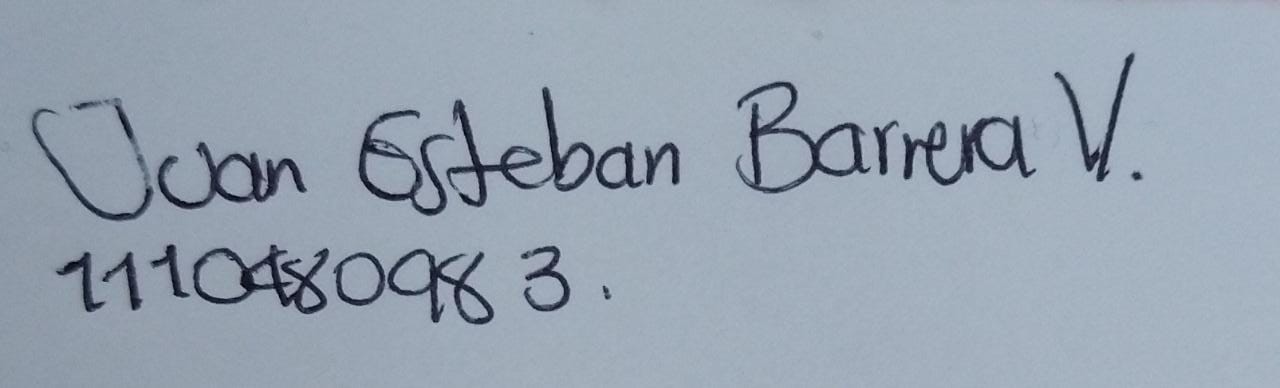 Juan Esteban Barrera V.
1110480983.